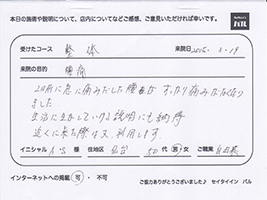 本日の施術や説明について、店内についてなどご感想、ご意見いただければ幸いです。
セイタイイン バル
受けたコース 整体 来院日 2015. 3.19
来院の目的 腰痛
20日前に急に痛みだした腰が すっかり痛みなくなり
ました
生活に生かしていける説明にも納得
近くに来た際は又、利用します。
イニシャル A.S 様 住地区 仙台 50代 男・女 ご職業 自由業
インターネットへの掲載 可 ・ 不可
ご協力ありがとうございました♪ セイタイイン バル